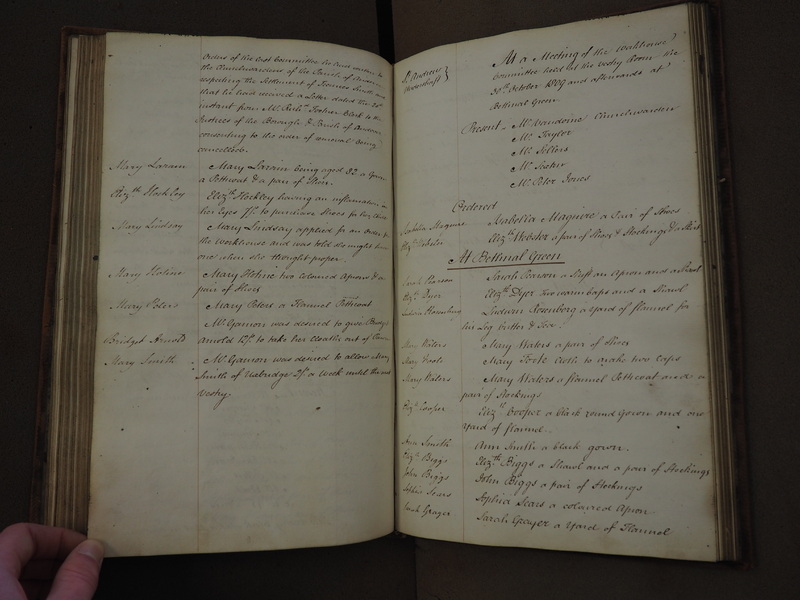 Orders of the last Committee he had written to
the Churchwardens of the Parish of Andover
respecting the Settlement of Frances Smith and
that he had received a Letter dated the 26th
instant from Mr. Richd. Footner Clerk to the
Justices of the Borough & Parish of Andover
consenting to the order of removal being
cancelled.
Mary Lazain Mary Lazain being aged 32 a Gown
a Petticoat & a pair of Shoes.
Elizth Hockley Elizth Hockley having an inflammation in
her Eyes 7/. to purchase Shoes for her
Mary Lindsay Mary Lindsay applied for an order for
the Workhouse and was told she might have
one when she thought proper.
Mary Holine Mary Holine two coloured Aprons & a
pair of Shoes
Mary Peters Mary Peters a Flannel Petticoat
Mr. Gamon was desired to give Bridget
Bridget Arnold Arnold to take her Cloaths out of
Mary Smith Mr. Gamon was desired to allow Mary
Smith of Uxbridge 2/. a Week until the next
Vestry.
St. Andrew
Undershaft
At a Meeting of the Workhouse
Committee held at the Vestry Room the
30th October 1809 and afterwards at
Bethnal Green
Present Mr. Churchwarden
Mr. Taylor
Mr. Sellers
Mr.
Mr. Peter Jones
Ordered
Isabella Maguire Isabella Maguire a Pair of Shoes
Elizth Webster Elizth Webster a pair of Shoes & Stockings & a Shift
At Bethnal Green
Sarah Pearson Sarah Pearson a Stuff Apron and a
Elizth Dyer Elizth Dyer two and a Shawl
Ludwin Rosenberg Ludwin Rosenberg a Yard of flannel for
his Leg
Mary Waters Mary Waters a pair of Shoes
Mary Foote Mary Foote Cloth to make two Caps
Mary Waters Mary Waters a flannel Petticoat and a
pair of Stockings
Elizth Cooper Elizth Cooper a black round Gown and one
Yard of flannel
Ann Smith Ann Smith a black gown.
Elizth Biggs Elizth Biggs a Shawl and a pair of Stockings
John Biggs John Biggs a pair of Stockings
Sophia Sears Sophia Sears a coloured Apron
Sarah Grayer Sarah Grayer a Yard of Flannel